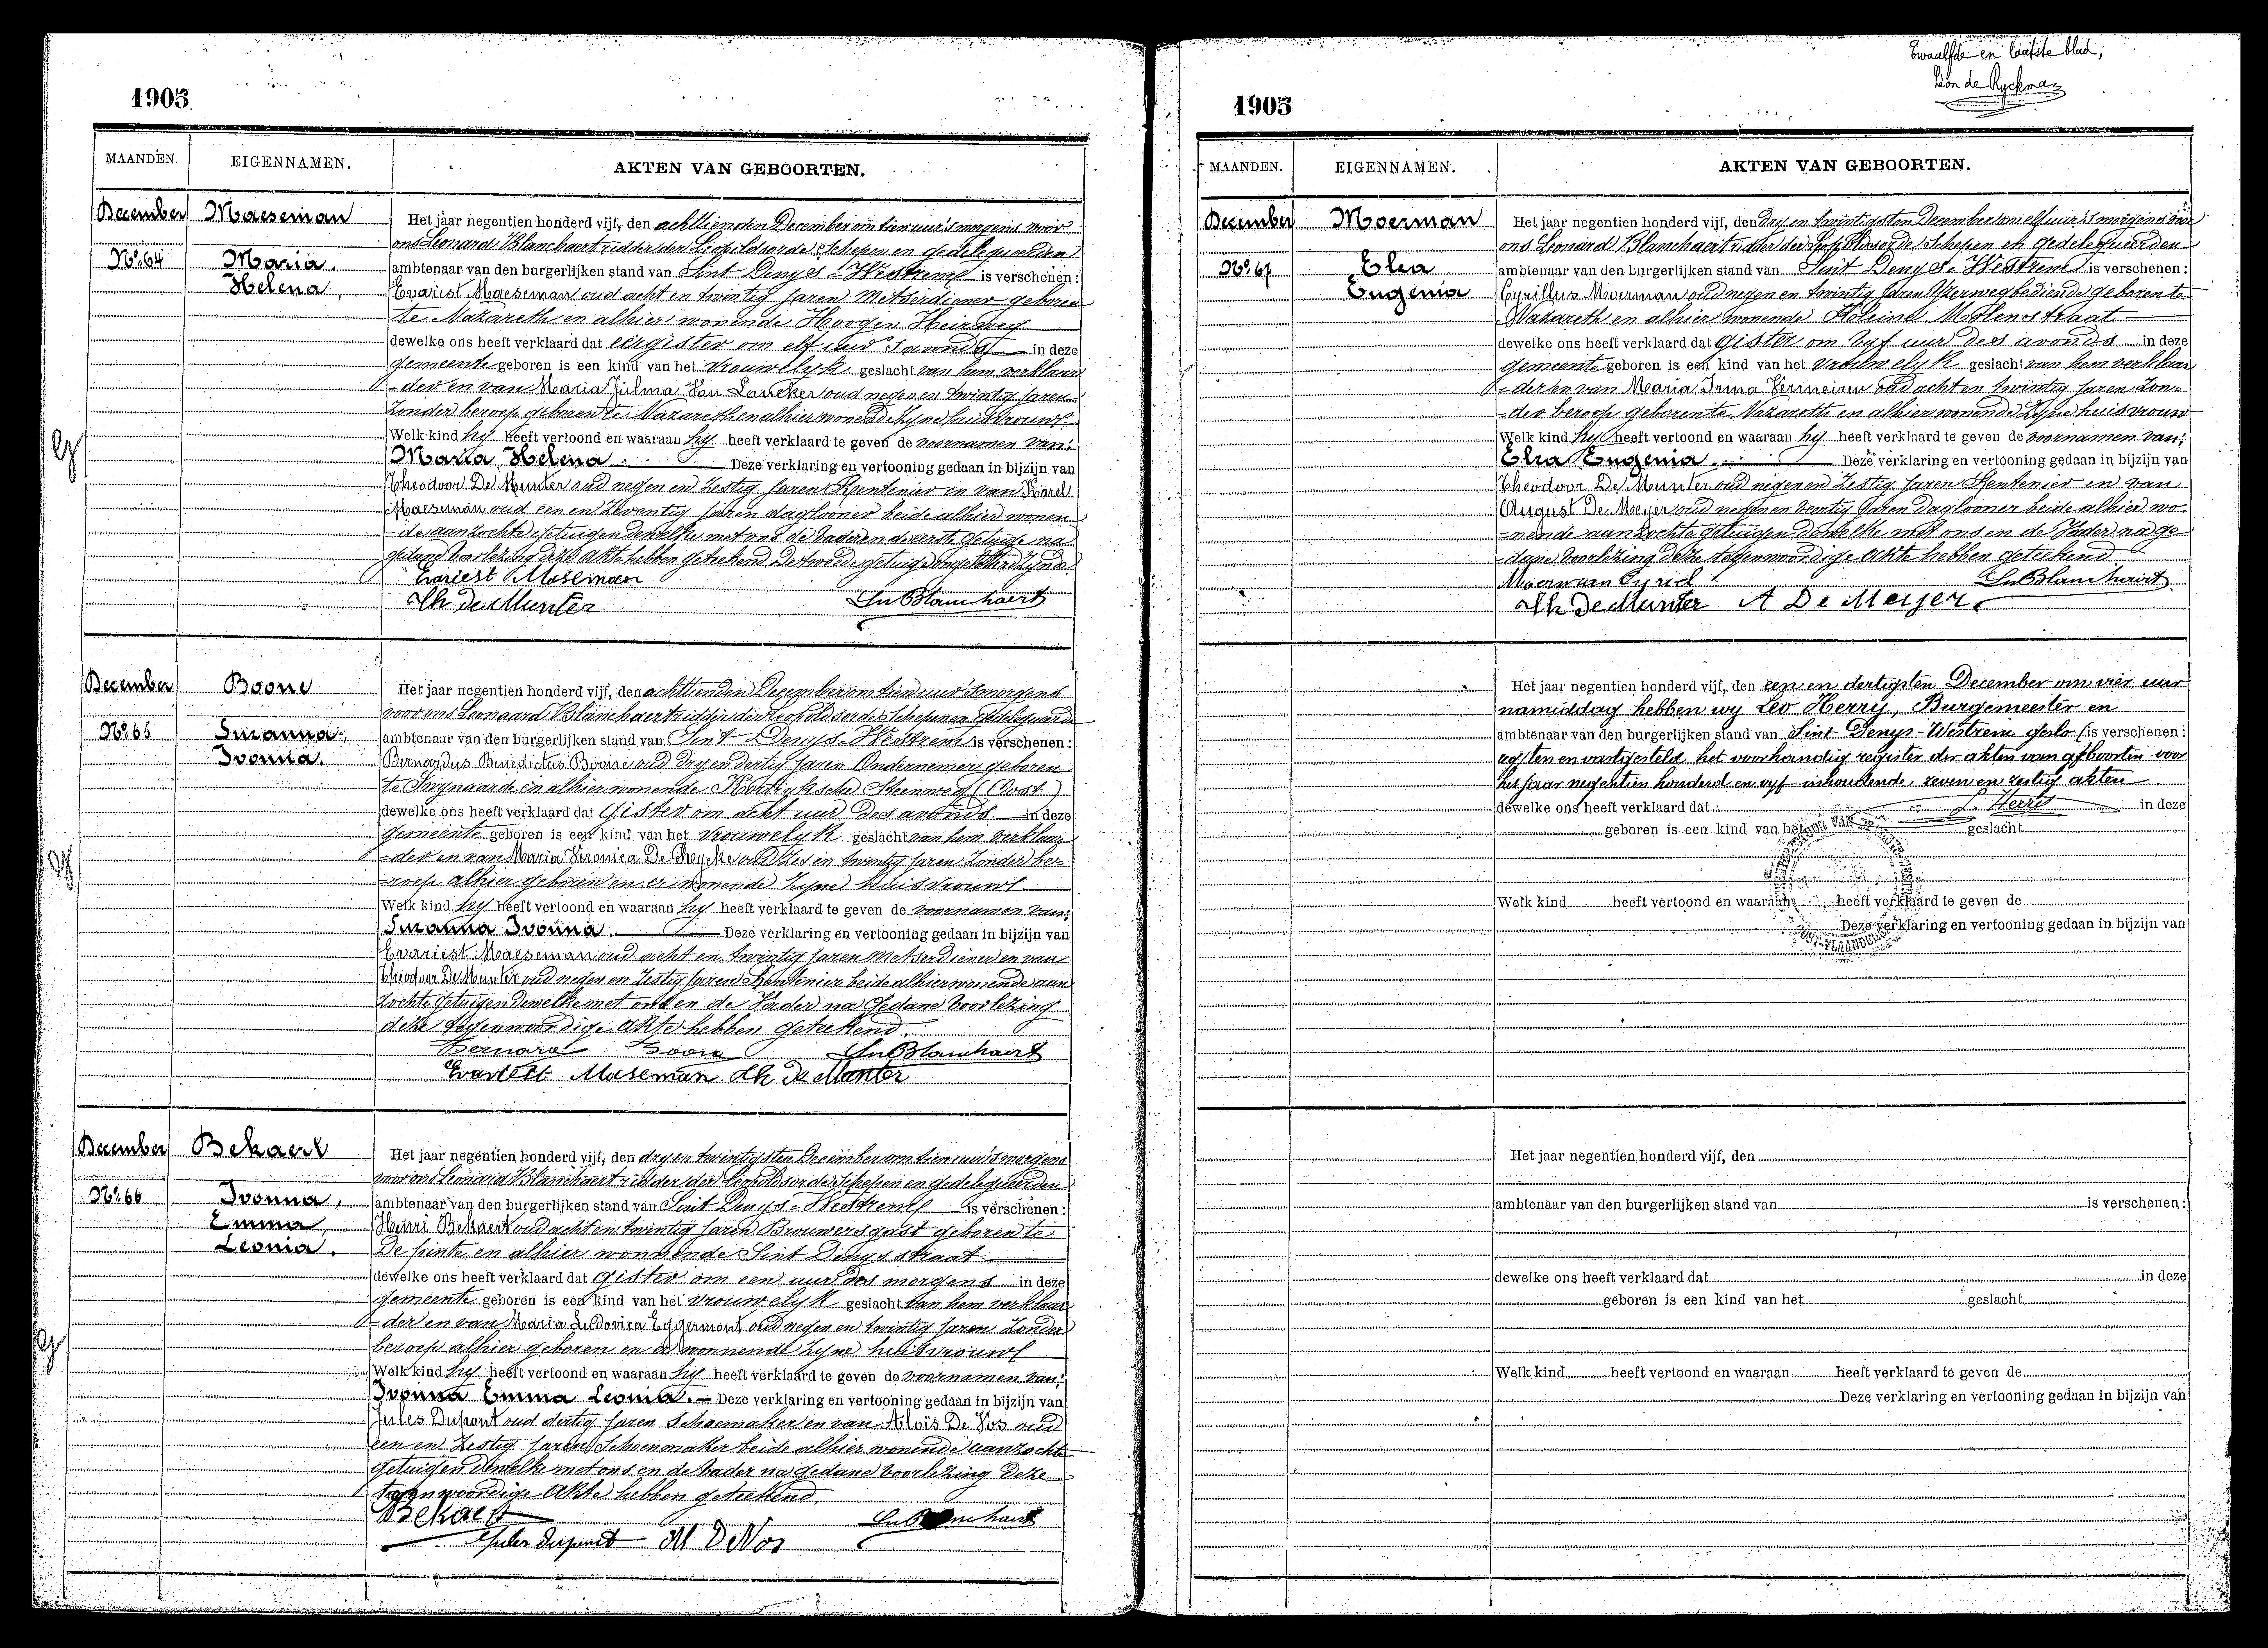 1905
MAANDEN. EIGENNAMEN. AKTEN VAN GEBOORTEN.
December Maeseman
Nº 64 Maria.
Helena,
Het jaar negentien honderd vijf, den achttienden December om tien uur 's morgens voor
ons Leonard Blanchaert ridder der Leopoldsorde Schepen en gedelegueerden
ambtenaar van den burgerlijken stand van Sint Denys-Westrem is verschenen:
Evarist Maeseman oud acht en twintig jaren Metserdiener geboren
te Nazareth en alhier wonende Hoogen Heirweg
dewelke ons heeft verklaard dat eergister om elf uur 's avonds in deze
gemeente geboren is een kind van het vrouwelyk geslacht van hem verklaar
-der en van Maria Julma Van Laneker oud negen en twintig jaren
zonder beroep geboren te Nazareth en alhier wonende zyne huisvrouw
Welk kind hy heeft vertoond en waaraan hy heeft verklaard te geven de voornamen van:
Maria Helena. Deze verklaring en vertooning gedaan in bijzijn van
Theodoor De Munter oud negen en zestig jaren Rentenier en van Karel
Maeseman oud een en zeventig jaren daglooner beide alhier wonen
-de aanzochte getuigen dewelke met ons de vader en de eerste getuige na
gedane voorlezing deze akte hebben geteekend De tweede getuige ongeletterd zynde
Evariest Maseman
Th De Munter Ln Blanchaert
December Boone
Nº 65 Suzanna,
Ivonna.
Het jaar negentien honderd vijf, den achttienden December om tien uur 's morgens
voor ons Leonaard Blanchaert ridder der Leopoldsorde Schepen en gedelegueerde
ambtenaar van den burgerlijken stand van Sint Denys-Westrem is verschenen:
Bernardus Benedictus Boone oud dry en dertig jaren Ondernemer geboren
te Swynaarde en alhier wonende Kortryksche Steenweg (Oost)
dewelke ons heeft verklaard dat gister om acht uur des avonds in deze
gemeente geboren is een kind van het vrouwelyk geslacht van hem verklaar
-der en van Maria Veronica De Rycke oud zes en twintig jaren zonder be-
-roep alhier geboren en er wonende zyne huisvrouw
Welk kind hy heeft vertoond en waaraan hy heeft verklaard te geven de voornamen van:
Suzanna Ivonna. Deze verklaring en vertooning gedaan in bijzijn van
Evariest Maeseman oud acht en twintig jaren Metserdiener en van
Theodoor De Munter oud negen en zestig jaren Rentenier beide alhier wonende aan
zochte getuigen dewelke met ons en de Vader na gedane voorlezing
deze tegenwoordige akte hebben geteekend.
Bernard Boone Ln Blanchaert
Evariest Maseman Th De Munter
December Bekaert
Nº 66 Ivonna,
Emma,
Leonia.
Het jaar negentien honderd vijf, den dry en twintigsten December om tien uur 's morgens
voor ons Leonard Blanchaert ridder der Leopoldsorde Schepen en gedelegueerden
ambtenaar van den burgerlijken stand van Sint Denys-Westrem is verschenen:
Henri Bekaert oud acht en twintig jaren Brouwersgast geboren te
De pinte en alhier wonnende Sint Denys straat
dewelke ons heeft verklaard dat gister om een uur des morgens in deze
gemeente geboren is een kind van het vrouwelyk geslacht van hem verklaar
-der en van Maria Ludovica Eggermont oud negen en twintig jaren zonder
beroep alhier geboren en er wonnende zyne huisvrouw
Welk kind hy heeft vertoond en waaraan hy heeft verklaard te geven de voornamen van:
Ivonna Emma Leonia. Deze verklaring en vertooning gedaan in bijzijn van
Jules Dupont oud dertig jaren Schoemaker en van Aloïs De Vos oud
een en zestig jaren Schoenmaker beide alhier wonende aanzochte
getuigen dewelke met ons en de Vader na gedane voorlezing deze
tegenwoordige akte hebben geteekend.
Bekaert Ln Blanchaert
Jules Dupont Al DeVos
Twaalfde en laatste blad,
Léon de Ryckman
1905
MAANDEN. EIGENNAMEN. AKTEN VAN GEBOORTEN.
December Moerman
Nº 67 Elza
Eugenia
Het jaar negentien honderd vijf, den dry en twintigsten December om elf uur 's morgens voor
ons Leonard Blanchaert ridder der Leopoldsorde Schepen en gedelegueerden
ambtenaar van den burgerlijken stand van Sint Denys-Westrem is verschenen:
Cyrillus Moerman oud negen en twintig jaren Yzerwegbediende geboren te
Nazareth en alhier wonende Kleine Molenstraat
dewelke ons heeft verklaard dat gister om vyf uur des avonds in deze
gemeente geboren is een kind van het vrouwelyk geslacht van hem verklaar
-der en van Maria Irma Vermeiren oud acht en twintig jaren zon-
-der beroep geboren te Nazareth en alhier wonende zyne huisvrouw
Welk kind hy heeft vertoond en waaraan hy heeft verklaard te geven de voornamen van:
Elza Eugenia. Deze verklaring en vertooning gedaan in bijzijn van
Theodoor De Munter oud negen en zestig jaren Rentenier en van
August De Meyer oud negen en veertig jaren daglooner beide alhier wo-
-nende aanzochte getuigen dewelke met ons en de Vader na ge
-dane voorlezing deze tegenwoordige akte hebben geteekend
Moerman Cyriel Ln Blanchaert
Th De Munter A De Meijer
Het jaar negentien honderd vijf, den een en dertigsten December om vier uur
namiddag hebben wy Leo Herry, Burgemeester en
ambtenaar van den burgerlijken stand van Sint Denys-Westrem geslo (is verschenen:
ten en vastgesteld het voorhandig register der akten van geboorten voor
het jaar negentien honderd en vyf inhoudende zeven en zestig akten
dewelke ons heeft verklaard dat L. Herry in deze
geboren is een kind van het geslacht
Welk kind heeft vertoond en waaraan heeft verklaard te geven de
Deze verklaring en vertooning gedaan in bijzijn van
OOST-VLAANDEREN
Het jaar negentien honderd vijf, den
ambtenaar van den burgerlijken stand van is verschenen:
dewelke ons heeft verklaard dat in deze
geboren is een kind van het geslacht
Welk kind heeft vertoond en waaraan heeft verklaard te geven de
Deze verklaring en vertooning gedaan in bijzijn van